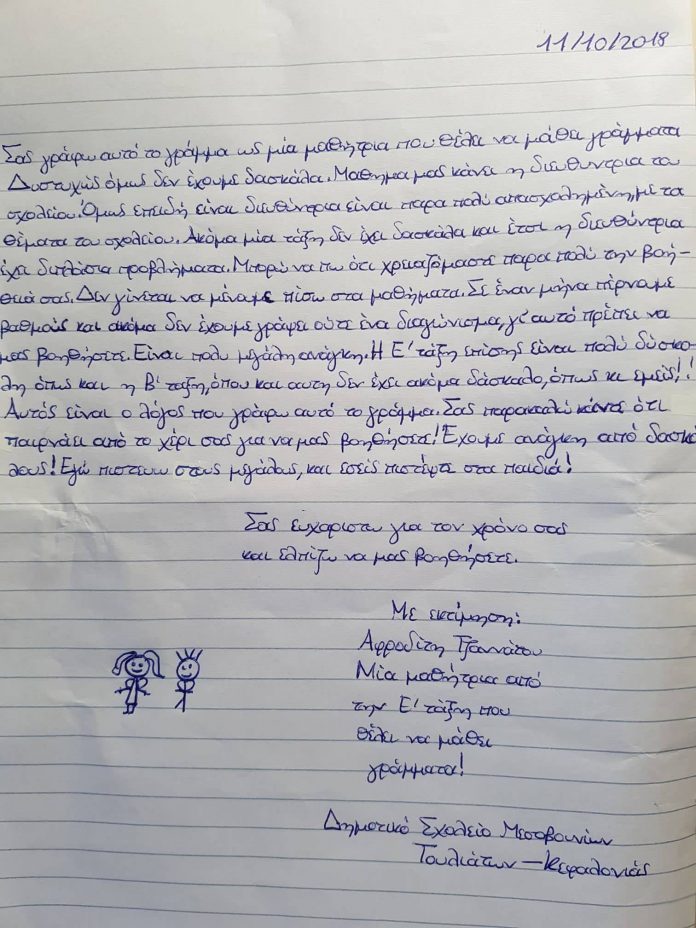 11/10/2018
Σας γράφω αυτό το γράμμα ως μία μαθήτρια που θέλει να μάθει γράμματα
Δυστυχώς όμως δεν έχουμε δασκάλα. Μαθημα μας κάνει η διευθυντρια του
σχολείου. Όμως επειδή είναι διευθύντρια είναι παρα πολύ απασχολημένη, με τα
θέματα του σχολείου. Ακόμα μία τάξη δεν έχει δασκάλα και έτσι η διευθύντρια
έχει διπλάσια προβλήματα. Μπορώ να πω ότι χρειαζόμαστε παρα πολύ την βοή-
θειά σας. Δεν γίνεται να μένουμε πίσω στα μαθήματα. Σε έναν μήνα πέρνουμε
βαθμούς και ακόμα δεν έχουμε γράψει ούτε ένα διαγώνισμα, γι' αυτό πρέπει να
μας βοηθήσετε. Είναι πολυ μεγάλη ανάγκη. Η Ε' τάξη επίσης είναι πολύ δύσκο-
λη όπως και η Β' ταξη, όπου και αυτη δεν έχει ακόμα δάσκαλο, όπως κι εμείς!!
Αυτός είναι ο λόγος που γράφω αυτό το γράμμα. Σας παρακαλώ κάντε ότι
παιρνάει από το χέρι σας για να μας βοηθήσετε! Έχουμε ανάγκη από δασκά
λους! Εγώ πιστευω στους μεγάλους, και εσείς πιστέψτε στα παιδιά!
Σας ευχαριστω για τον χρόνο σας
και ελπίζω να μας βοηθήσετε.
Με εκτίμηση:
Αφροδίτη Τζαννάτου
Μία μαθήτρια από
την Ε' τάξη που
θέλει να μάθει
γράμματα!
Δημοτικό Σχολείο Μεσοβουνίων
Τουλιάτων - Κεφαλονιάς